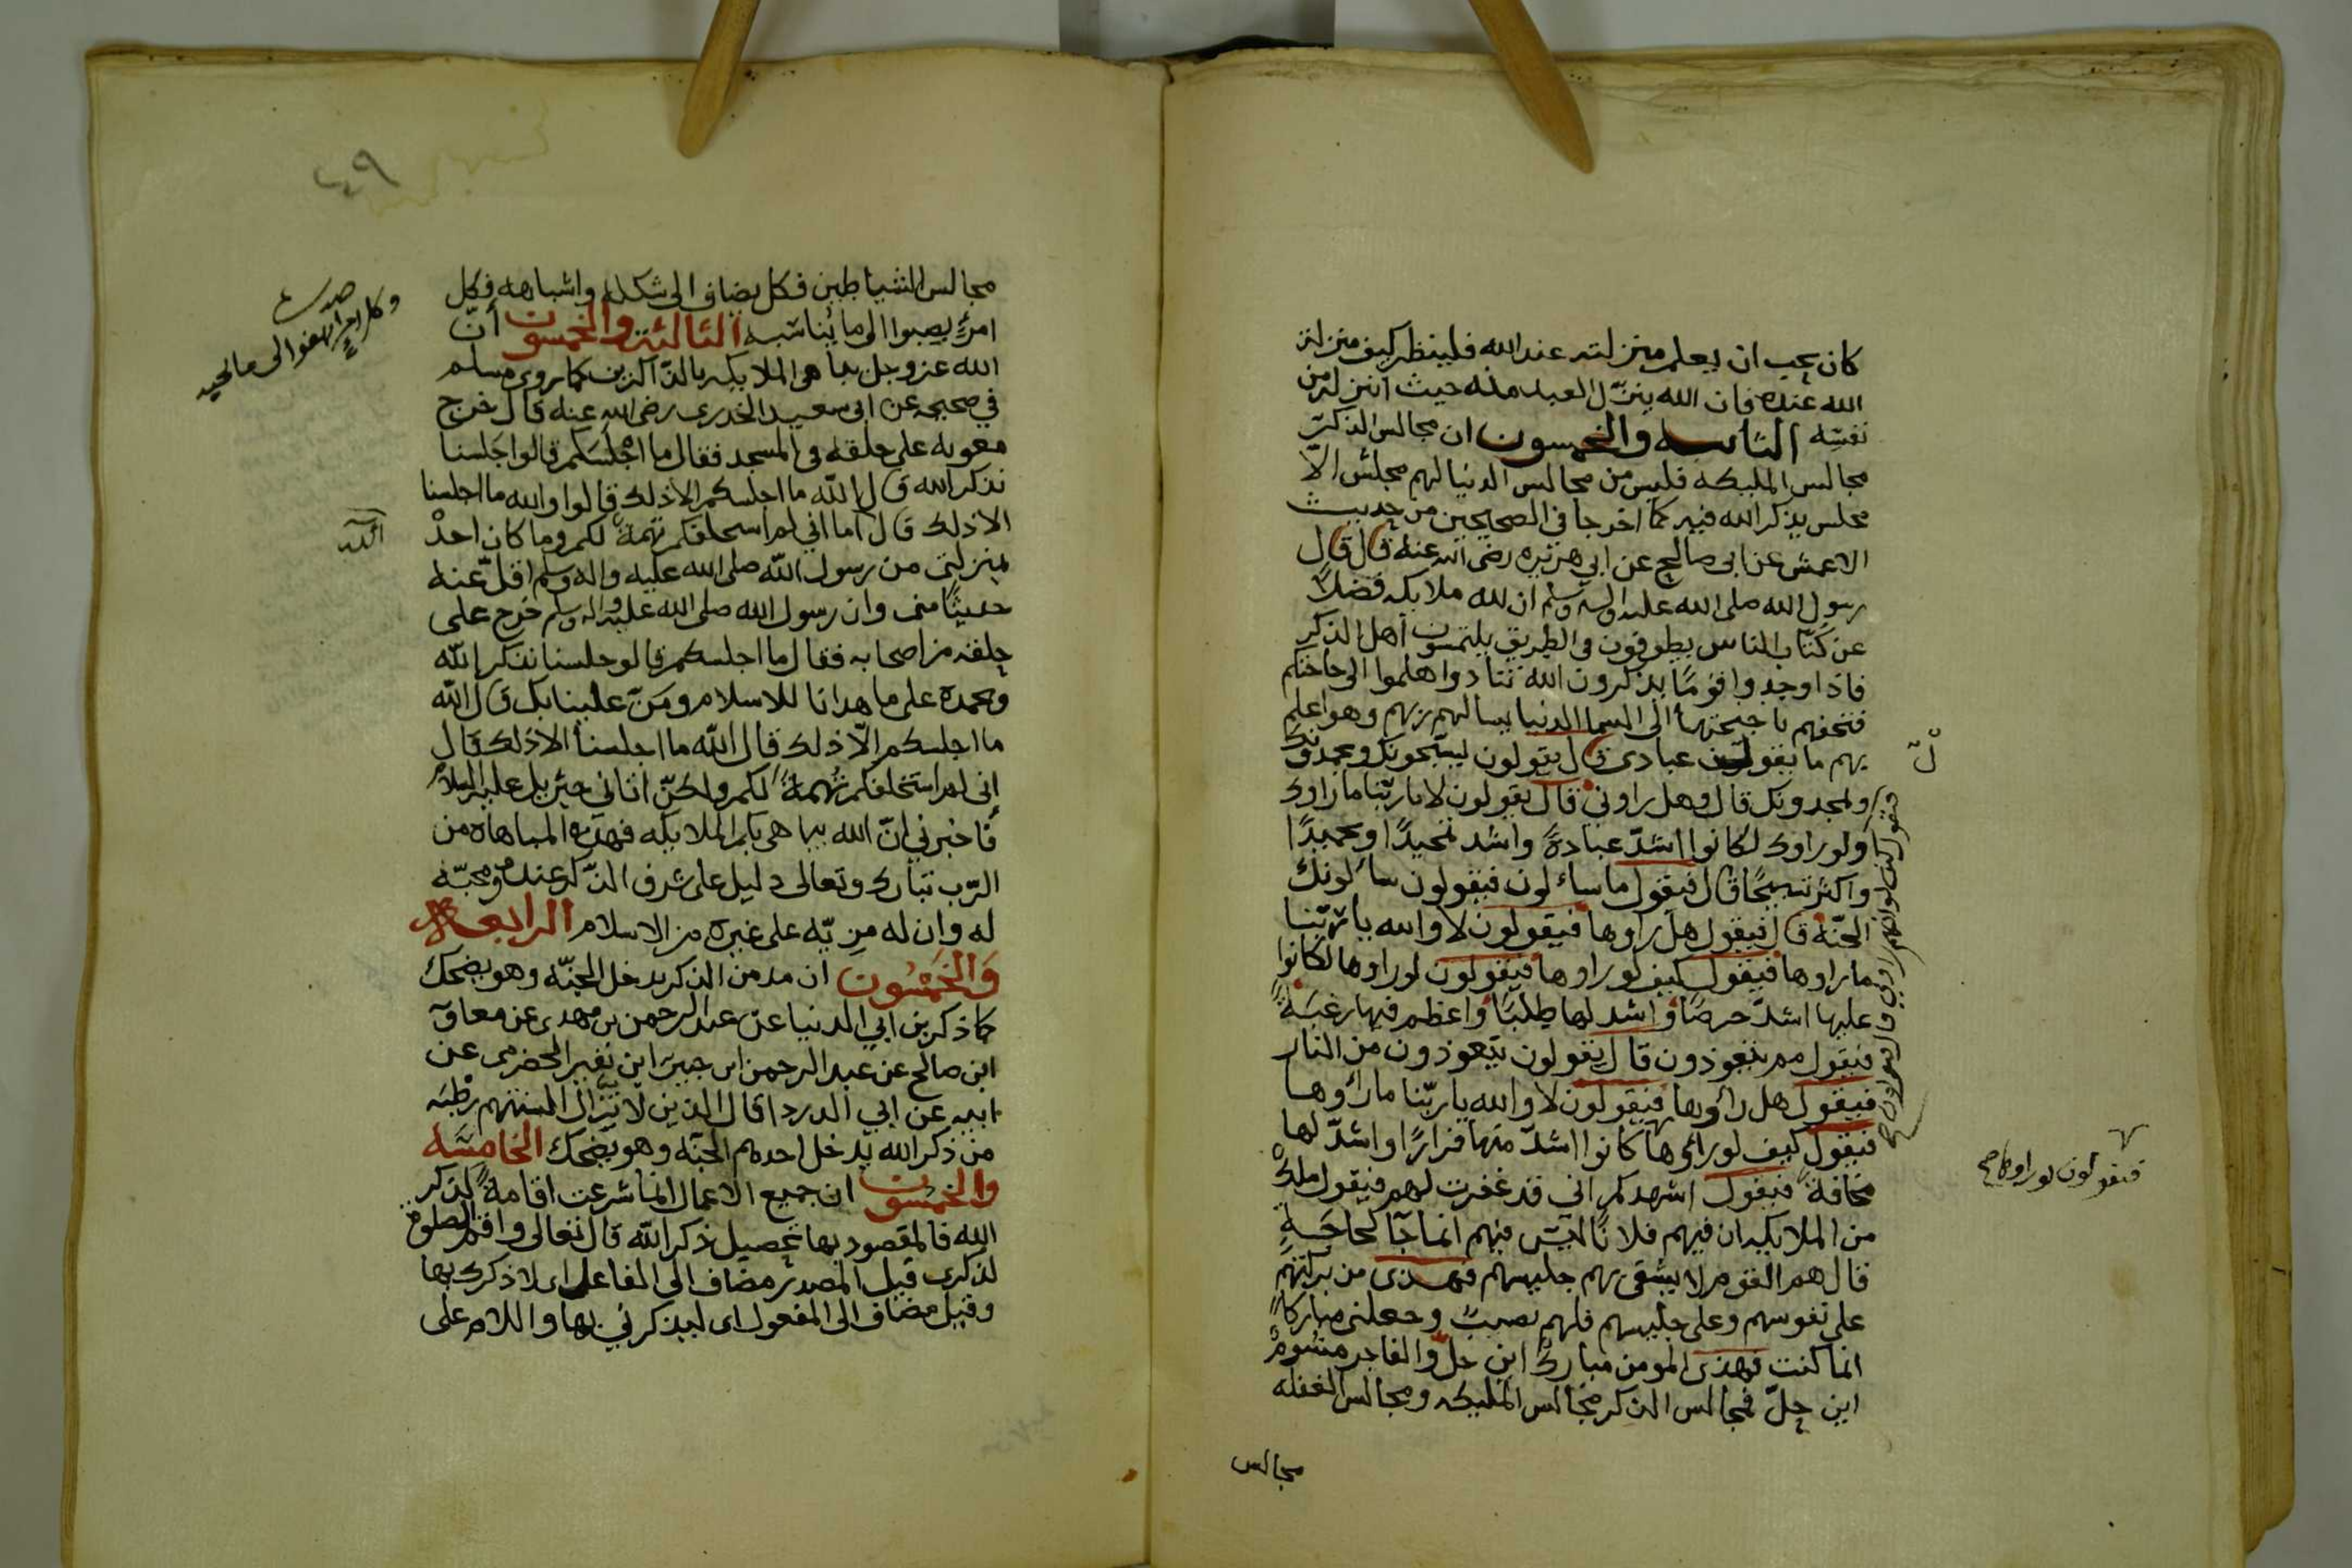 كان يحب ان يعلم منزلته عند الله فلينظر كيف منزلة
الله عنده فان الله ينزل العبد منه حيث انزله من
نفسه الثانيه والخمسون ان مجالس الذكر
مجالس المليكه فليس من مجالس الدنيا لهم مجلس الّا
مجلس يذكر الله فيه كما اخرجا في الصحيحين من حديث
الاعمش عن ابي صالح عن ابي هريره رضي الله عنه قال قال
رسول الله صلى الله عليه واله وسلم ان لله ملايكه فضلاً
عن كتّاب الناس يطوفون في الطريق يلتمسون أهل الذكر
فاذا وجدوا قومًا يذكرون الله تنادوا هلموا الى حاجتكم
فتحفهم باجنحتها الى السما الدنيا يسالهم ربهم وهو اعلم
بهم ما يقول عبادي قال يقولون يسبّحونك ويحمدونك
ويمجدونك قال وهل راوني قال يقولون لا يا ربّنا ما راوك
ولو راوك لكانوا اشدّ عبادةً واشد تحيدًا وتمجيدًا
واكثر تسبيحًا قال فيقول ما سائلون فيقولون سائلونك
الجنّه قال فيقول هل راوها فيقولون لا والله يا ربّنا
ما راوها فيقول كيف لو راوها فيقولون لو راوها لكانوا
عليها اشدّ حرصًا واشد لها طلبًا واعظم فيها رغبةً
فيقول مم يتعوذون قال يقولون يتعوذون من النار
فيقول هل رأوها فيقولون لا والله يا ربّنا ما رأوها
فيقول كيف لو رأوها كانوا اشدّ منها فرارًا واشدّ لها
مخافةً فيقول اشهدكم اني قد غفرت لهم فيقول ملكٌ
من الملايكه ان فيهم فلانًا ليس منهم انما جآ لحاجةٍ
قال هم القوم لا يشقى بهم جليسهم فهذى من بركتهم
على نفوسهم وعلى جليسهم فلهم نصيبٌ وجعلني مباركاً
انما كنت فهذى المومن مباركٌ اين حلّ والفاجر مشومٌ
اين حلّ فمجالس الذكر مجالس المليكه ومجالس الغفله
مجالس
فيقولون لو راوها
٤٩
مجالس الشياطين فكل يضاف الى شكله واشباهه فكل
امرئٍ يصبوا الى ما يناسبه الثالثة والخمسون أنّ
الله عز وجل يباهي الملايكه بالذّاكرين كما روى مسلم
في صحيحه عن ابي سعيد الخدري رضي الله عنه قال خرج
معويه على حلقه في المسجد فقال ما اجلسكم قالوا جلسنا
نذكر الله قال الله ما اجلسكم الا ذلك قالوا والله ما اجلسنا
الا ذلك قال أما اني لم استحلفكم تهمةً لكم وما كان احدٌ
بمنزلتي من رسول الله صلى الله عليه واله وسلم اقلّ عنه
حديثًا مني وان رسول الله صلى الله عليه واله وسلم خرج على
حلقه من اصحابه فقال ما اجلسكم قالو جلسنا نذكر الله
ونحمده على ما هدانا للاسلام ومنّ علينا بك قال الله
ما اجلسكم الّا ذلك قال الله ما اجلسنا الا ذلك قال
إني لم استحلفكم تُهمةً لكم ولكنّ اتاني جبريل عليه السلام
فأخبرني انّ الله يباهي بكم الملايكه فهذه المباهاه من
الرّب تبارك وتعالى دليل على شرف الذّكر عنده ومحبّته
له وان له مزيّه على غيره من الاسلام الرابعه
والخمسون ان مدمن الذكر يدخل الجنّه وهو يضحك
كما ذكر بن ابي الدنيا عن عبد الرحمن بن مهدى عن معاوية
ابن صالح عن عبد الرحمن ابن جبير ابن نفير الحضرمي عن
ابيه عن ابي الدردا قال الذين لا تزال السنتهم رطبه
من ذكر الله يدخل احدهم الجنّه وهو يضحك الخامسه
والخمسون ان جميع الاعمال انما شرعت اقامةً لذكر
الله فالمقصود بها تحصيل ذكر الله قال تعالى واقم الصلوة
لذكرى قيل المصدر مضاف الى الفاعل اى لاذكرك بها
وقيل مضاف الى المفعول اى ليذكرني بها واللام على
الله